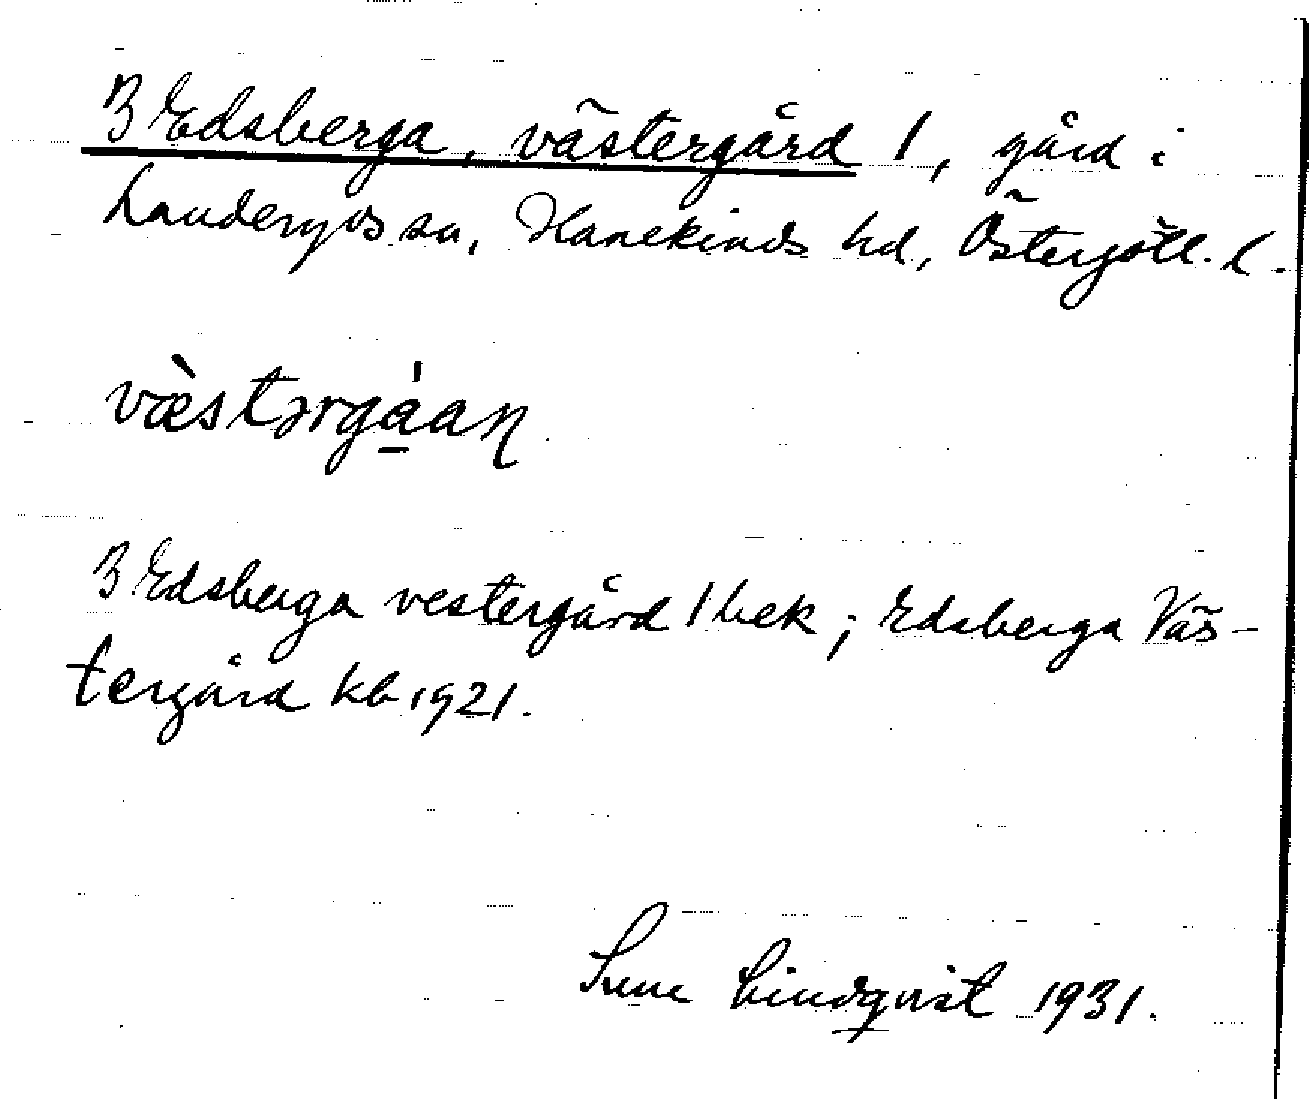 3 Edsberga, västergård 1, gård i
Landeryds sn, Hanekinds hd, Östergötl. l.
væ̀stərgá̱aɳ
3 Edsberga vestergård 1 bek; Edsberga Väs-
tergård kb 1921.
Sune Lindqvist 1931.